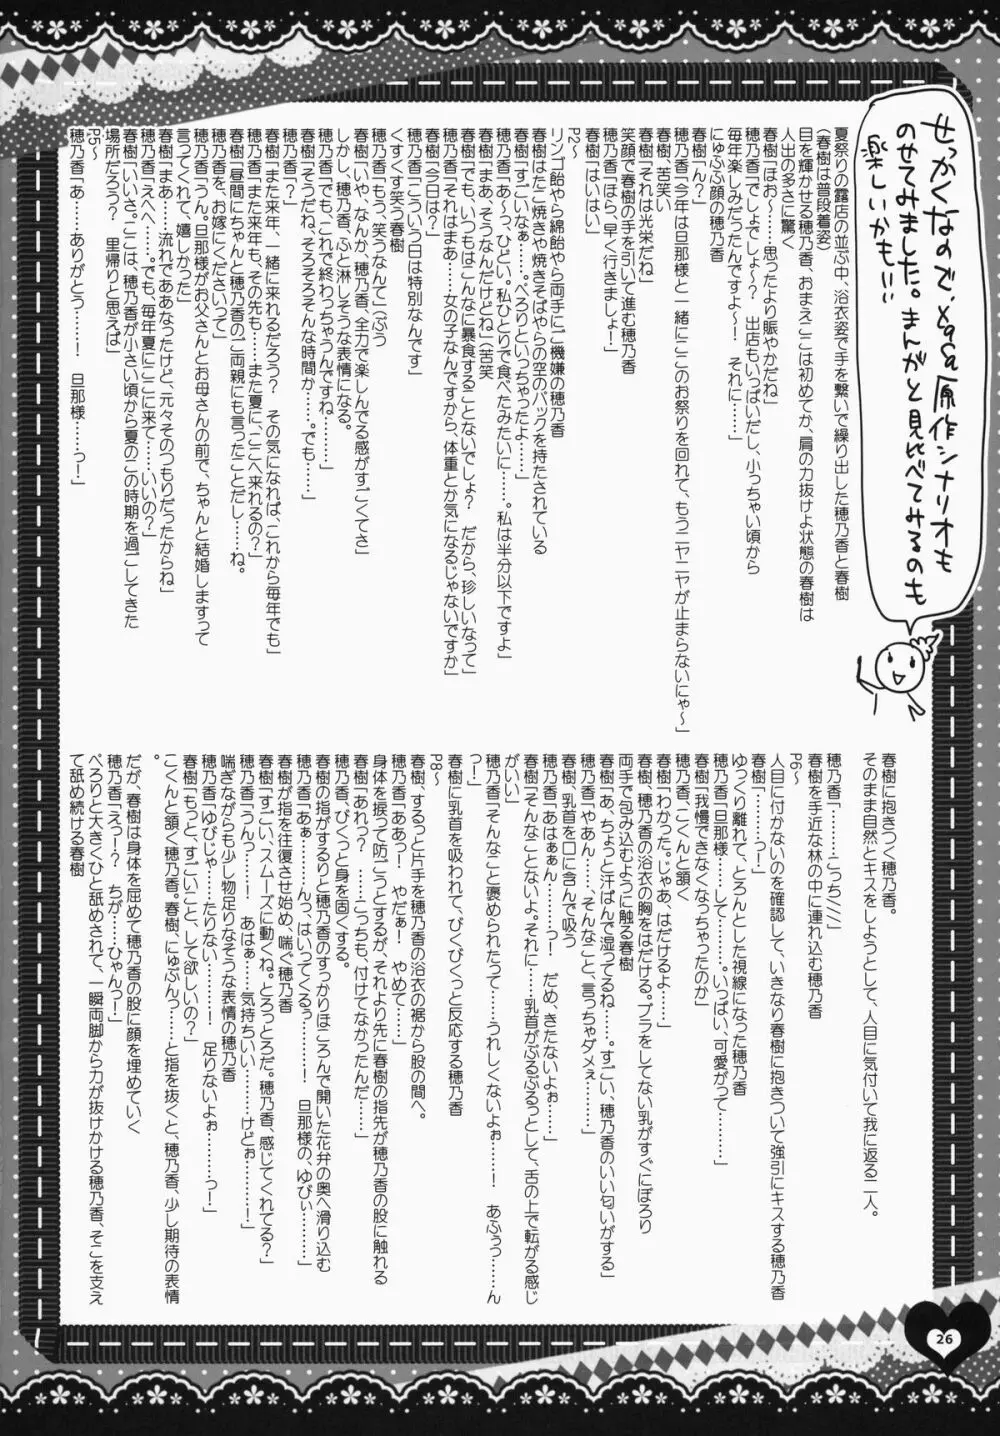 せっかくなので、xqsq原作シナリオも
のせてみました。まんがと見比べてみるのも
楽しいかも!!!
夏祭りの露店の並ぶ中、浴衣姿で手を繋いで繰り出した穂乃香と春樹
(春樹は普段着姿)
目を輝かせる穂乃香、おまえここは初めてか、肩の力抜けよ状態の春樹は
人出の多さに驚く
春樹「ほお~……思ったより賑やかだね」
穂乃香「でしょでしょ~? 出店もいっぱいだし、小っちゃい頃から
毎年楽しみだったんですよ~! それに……」
にゅふふ顔の穂乃香
春樹「ん?」
穂乃香「今年は旦那様と一緒にここのお祭りを回れて、もうニヤニヤが止まらないにゃ~」
春樹、苦笑い
春樹「それは光栄だね」
笑顔で春樹の手を引いて進む穂乃香
穂乃香「ほら、早く行きましょ~!」
春樹「はいはい」
P2~
リンゴ飴やら綿飴やら両手にご機嫌の穂乃香
春樹はたこ焼きや焼きそばやらの空のパックを持たされている
春樹「すごいなぁ……。ぺろりといっちゃったよ……」
穂乃香「あ~っ、ひどい。私ひとりで食べたみたいに……。私は半分以下ですよ」
春樹「まあ、そうなんだけどね」(苦笑
春樹「でも、いつもはこんなに暴食することないでしょ? だから、珍しいなって」
穂乃香「それはまあ……女の子なんですから、体重とか気になるじゃないですか」
春樹「今日は?」
穂乃香「こういう日は特別なんです」
くすくす笑う春樹
穂乃香「もう、笑うなんて」(ぷう
春樹「いや、なんか、穂乃香、全力で楽しんでる感がすごくてさ」
しかし、穂乃香、ふと淋しそうな表情になる。
穂乃香「でも、これで終わっちゃうんですね………」
春樹「そうだね、そろそろそんな時間か……。でも……」
穂乃香「?」
春樹「また来年、一緒に来れるだろう? その気になれば、これから毎年でも」
穂乃香「また来年も、その先も……また夏に、ここへ来れるの?」
春樹「昼間にちゃんと穂乃香のご両親にも言ったことだし……ね。
穂乃香を、お嫁にくださいって」
穂乃香「うん。旦那様がお父さんとお母さんの前で、ちゃんと結婚しますって
言ってくれて、嬉しかった」
春樹「まあ……流れでああなったけど、元々そのつもりだったからね」
穂乃香「えへへ……。でも、毎年夏にここに来て……いいの?」
春樹「いいさ。ここは、穂乃香が小さい頃から夏のこの時期を過ごしてきた
場所だろう? 里帰りと思えば」
P5~
穂乃香「あ……ありがとう……! 旦那様……っ!」
春樹に抱きつく穂乃香。
そのまま自然とキスをしようとして、人目に気付いて我に返る二人。
穂乃香「………こっち///」
春樹を手近な林の中に連れ込む穂乃香
P6~
人目に付かないのを確認して、いきなり春樹に抱きついて強引にキスする穂乃香
春樹「………っ!」
ゆっくり離れて、とろんとした視線になった穂乃香
穂乃香「旦那様……して……。いっぱい、可愛がって……」
春樹「我慢できなくなっちゃったのか」
穂乃香、こくんと頷く
春樹「わかった。じゃあ、はだけるよ……」
春樹、穂乃香の浴衣の胸をはだける。ブラをしてない乳がすぐにぽろり
両手で包み込むように触る春樹
春樹「あ、ちょっと汗ばんで湿ってるね……。すごい、穂乃香のいい匂いがする」
穂乃香「やあん……そんなこと、言っちゃダメぇ………」
春樹、乳首を口に含んで吸う
穂乃香「あはぁぁん………っ! だめ、きたないよぉ……」
春樹「そんなことないよ。それに……乳首がぷるぷるっとして、舌の上で転がる感じ
がいい」
穂乃香「そんなこと褒められたって……うれしくないよぉ……! あふぅっ……ん
っ!」
春樹に乳首を吸われて、びくびくっと反応する穂乃香
P8~
春樹、するっと片手を穂乃香の浴衣の裾から股の間へ。
穂乃香「ああっ! やだぁ! やめて……」
身体を捩って防ごうとするが、それより先に春樹の指先が穂乃香の股に触れる
春樹「あれっ? ……こっちも、付けてなかったんだ……」
穂乃香、びくっと身を固くする。
春樹の指がするりと穂乃香のすっかりほころんで開いた花弁の奥へ滑り込む
穂乃香「あぁ………んっ、はいってくるぅ……! 旦那様の、ゆびぃ………」
春樹が指を往復させ始め、喘ぐ穂乃香
春樹「すごい、スムーズに動くね。とろっとろだ。穂乃香、感じてくれてる?」
穂乃香「うんっ……! あはぁ……気持ちいい………けどぉ………!」
喘ぎながらも少し物足りなそうな表情の穂乃香
穂乃香「ゆびじゃ……たりない………! 足りないよぉ……っ!」
春樹「もっと、すごいこと、して欲しいの?」
こくんと頷く穂乃香。春樹、にゅぷんっ……と指を抜くと、穂乃香、少し期待の表情
。
だが、春樹は身体を屈めて穂乃香の股に顔を埋めていく
穂乃香「えっ!? ちが……ひゃんっ!」
ぺろりと大きくひと舐めされて、一瞬両脚から力が抜けかける穂乃香、そこを支え
て舐め続ける春樹
26